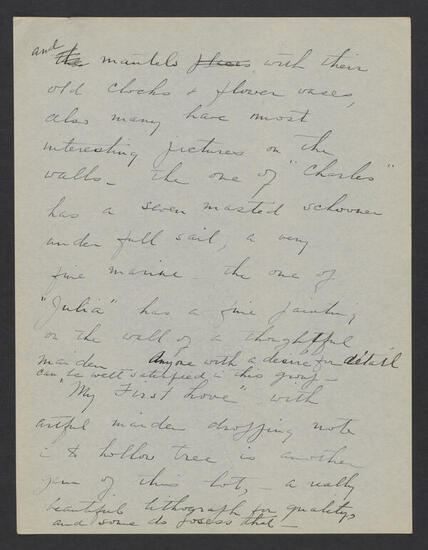 and the mantels places with their
old clocks & flower vases,
also many have most
interesting pictures on the
walls - the one of "Charles"
has a seven masted schooner
under full sail, a very
fine marine - the one of
"Julia" has a fine painting
on the wall of a thoughtful
maiden Anyone with a desire for detail
can be well satisfied in this group -
"My First Love" with
artful maiden dropping note
i & hollow tree is another
gem of this lot, - a really
beautiful lithograph for quality
and some do posess that -